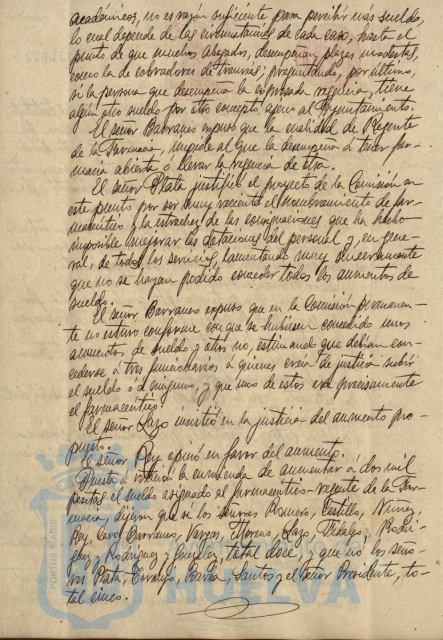 académicos, no es razón suficiente para percibir más sueldo,
lo cual depende de las circunstancias de cada caso, hasta el
punto de que muchos abogados, desempeñan plazas modestas,
como la de cobradores de tranvías; preguntando, por último,
si la persona que desempeña la expresada regencia, tiene
algún otro sueldo por otro concepto ageno al Ayuntamiento.
El señor Barranco expuso que la cualidad de Regente
de la Farmacia, impide al que la desempeña a tener far-
macia abierta ó llevar la regencia de otra.
El señor Plata justificó el proyecto de la Comisión en
este punto por ser muy reciente el nombramiento de far-
macéutico y la estrechez de las consignaciones que ha hecho
imposible mejorar las dotaciones del personal y, en gene-
ral, de todos los servicios, lamentando muy sinceramente
que no se hayan podido conceder todos los aumentos de
sueldo.
El señor Barranco expuso que en la Comisión permanen-
te no estuvo conforme con que se hubiesen concedido unos
aumentos de sueldo y otros no, estimando que debían con-
cederse á tres funcionarios á quienes creía de justicia subir
el sueldo ó á ninguno, y que uno de estos era precisamente
el farmacéutico.
El señor Lazo insistió en la justicia del aumento pro-
puesto.
El señor Rey opinó en favor del aumento.
Puesta á votación la enmienda de aumentar á dos mil
pesetas el sueldo asignado al farmacéutico-regente de la Far-
macia, dijeron que si los señores Romero, Castillo, Núñez,
Rey, Caro, Barranco, Vargas, Moreno, Lazo, Hidalgo, Rodrí-
guez, Rodríguez y González, total doce, y que no los seño-
res Plata, Santos y el Señor Presidente, to-
tal cinco.
PORTUS MARIS
HUELVA